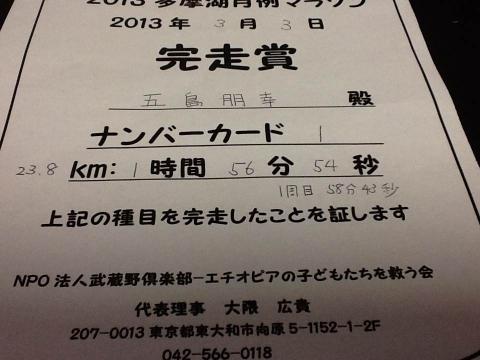 2013 多摩湖月例マラソン
2013 年 3 月 3 日
完走賞
五島朋幸 殿
ナンバーカード 1
23.8 km: 1 時間 56 分 54 秒
1周目 58分43秒
上記の種目を完走したことを証します
NPO 法人武蔵野倶楽部-エチオピアの子どもたちを救う会
代表理事 大隈 広貴
207-0013 東京都東大和市向原 5-1152-1-2F
042-566-0118